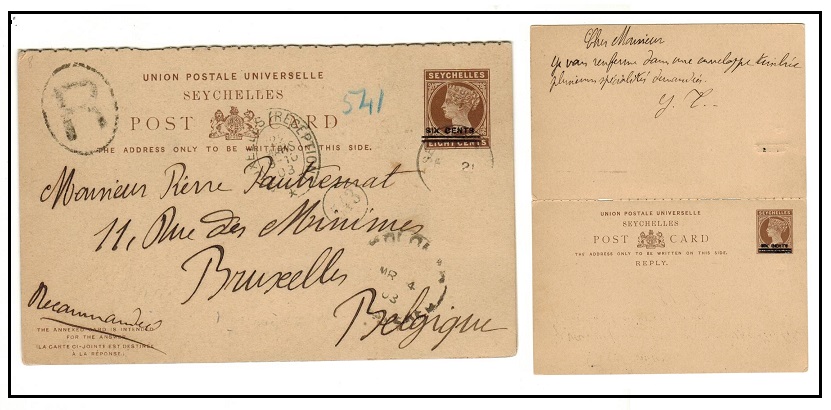 UNION POSTALE UNIVERSELLE
SEYCHELLES
POST CARD
THE ADDRESS ONLY TO BE WRITTEN ON THIS SIDE.
R
541
SEYCHELLES
SIX CENTS
EIGHT CENTS
(RECEPTION)
03
Monsieur Pierre
11, Rue des Minimes
Bruxelles
Belgique
Recommandée
MR 4
03
21
THE ANNEXED CARD IS INTENDED
FOR THE ANSWER.
(LA CARTE CI-JOINTE EST DESTINÉE
À LA RÉPONSE.)
Cher Monsieur
vous renferme dans une enveloppe timbrée
plusieurs spécialités demandées.
UNION POSTALE UNIVERSELLE
SEYCHELLES
POST CARD
THE ADDRESS ONLY TO BE WRITTEN ON THIS SIDE.
REPLY.
SIX CENTS